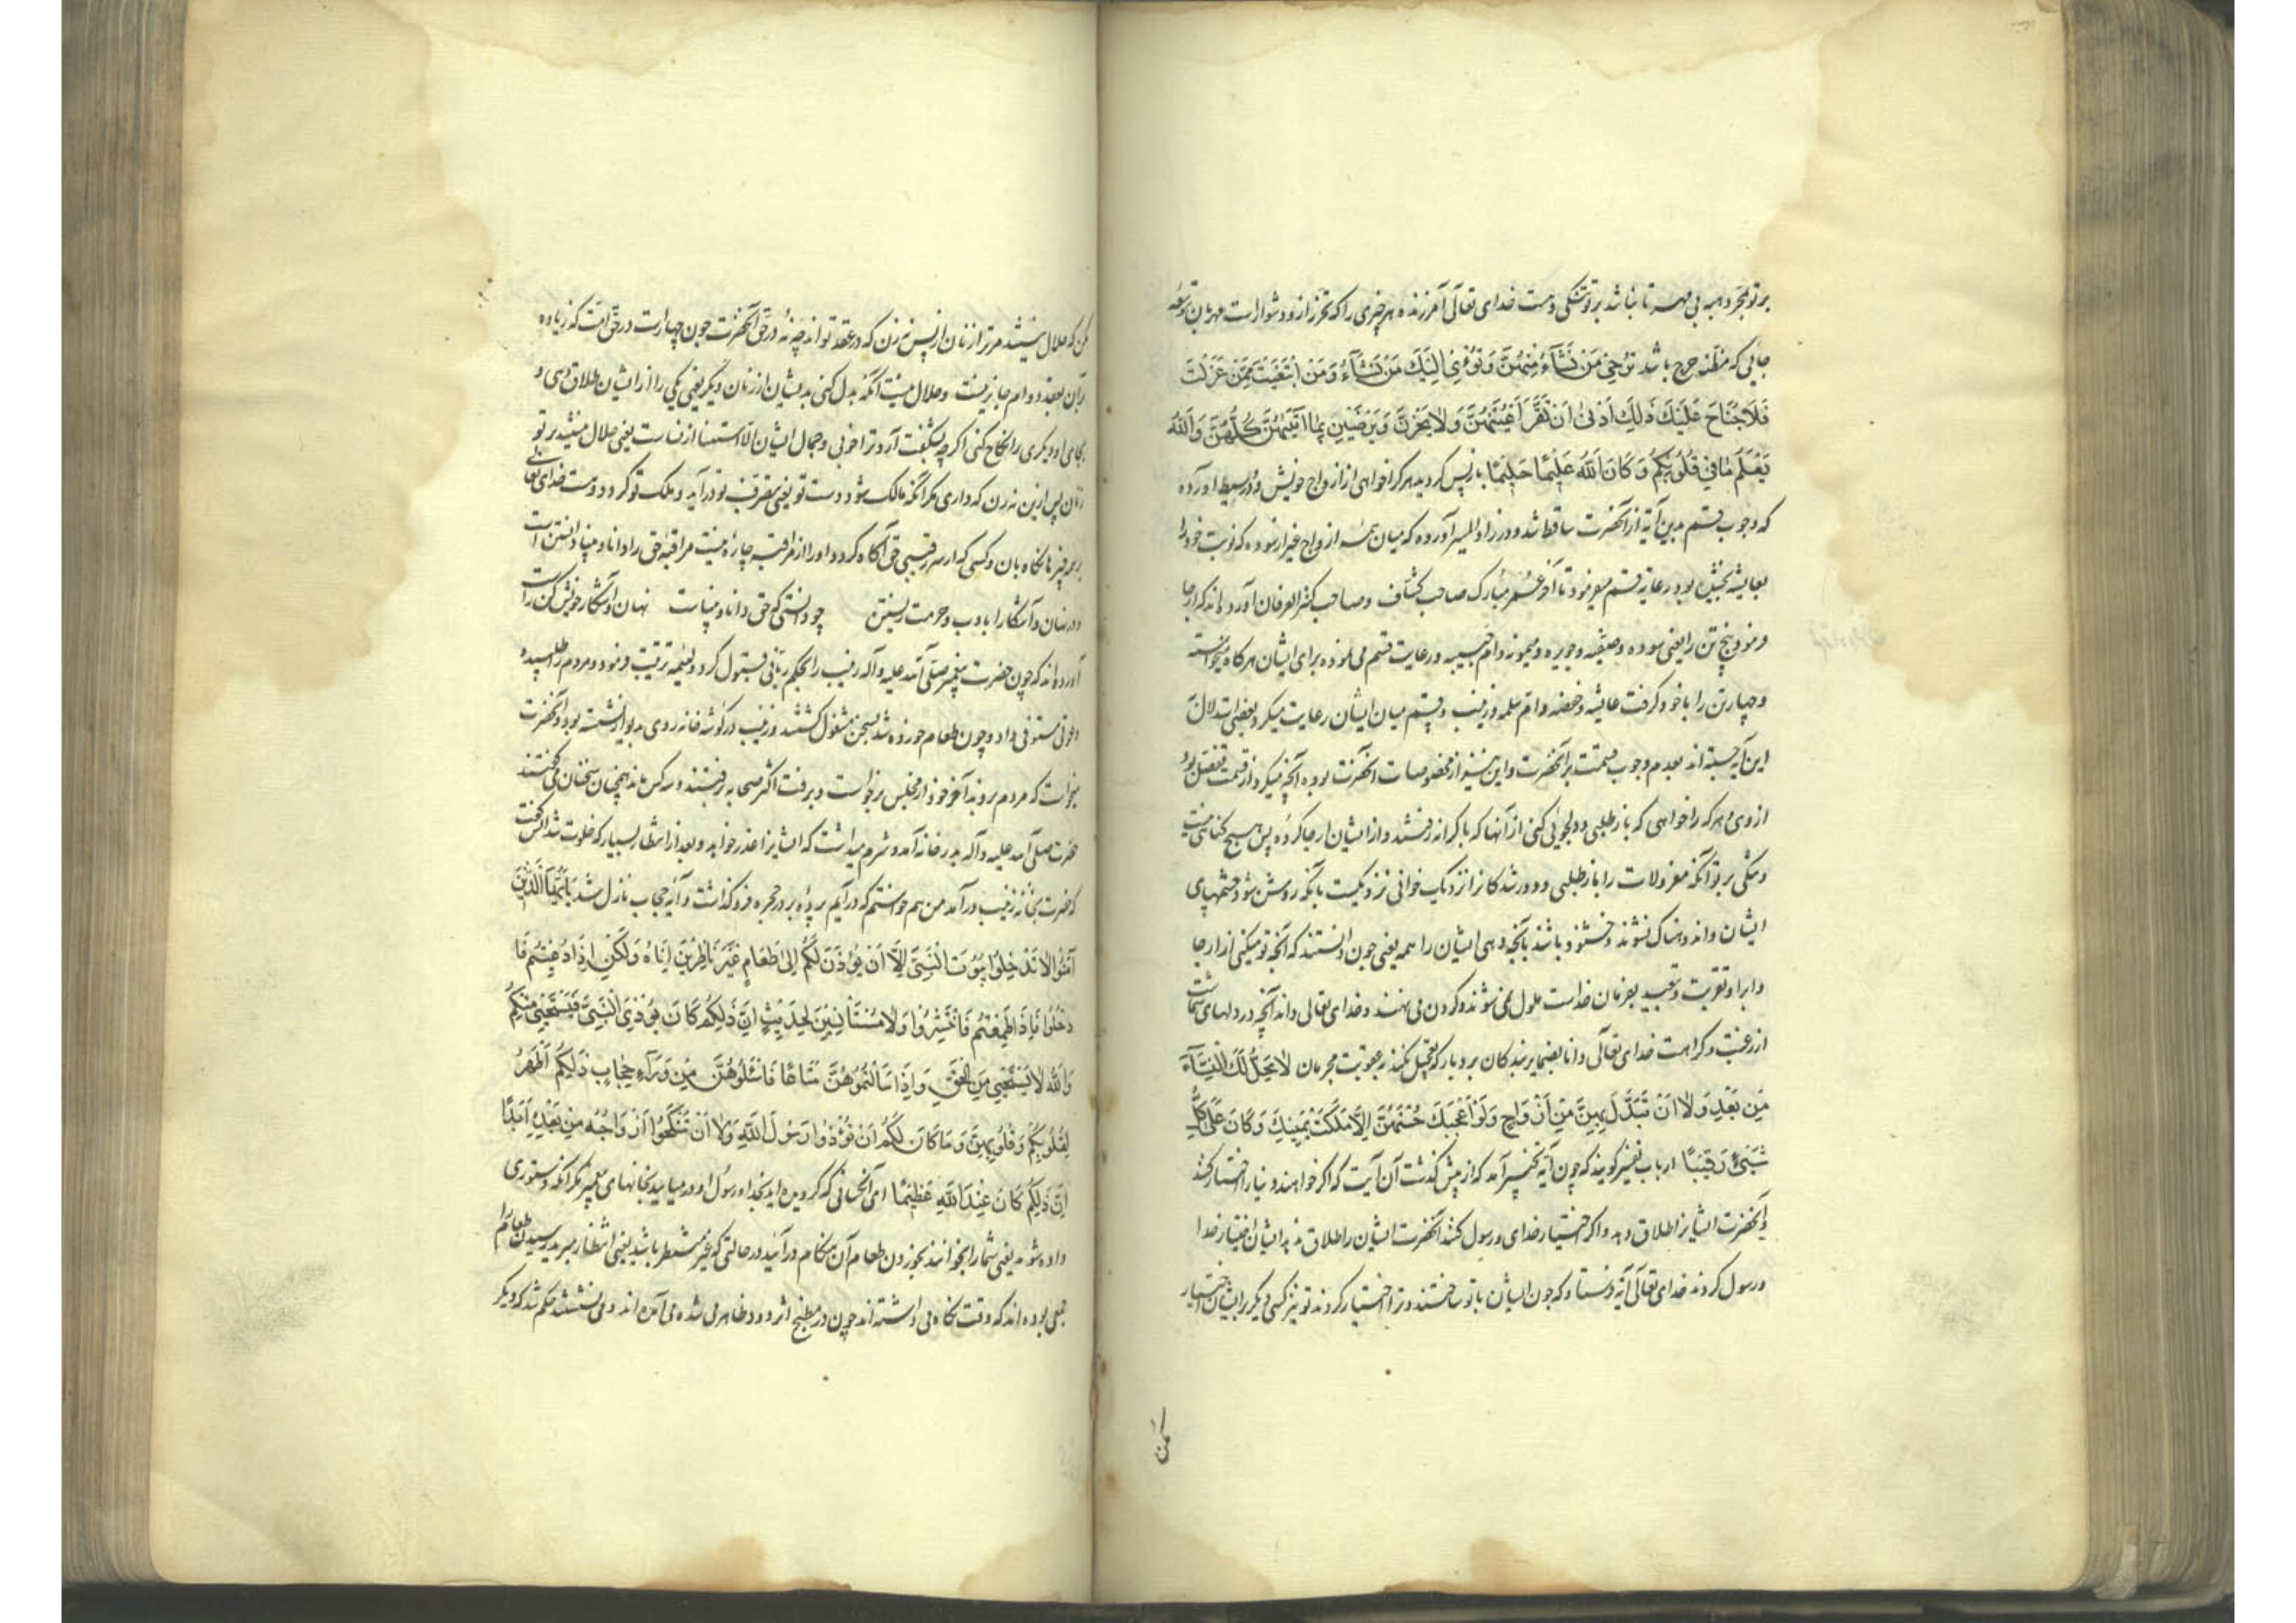 بر تو بمجرد هبه بی مهر تا نباشد بر تو تنگی و هست خدای تعالی آمرزنده هر چیزی را که تحرز ازو دشوار است مهربان بتوسعه
جایی که مظنه حرج باشد تُرْجِی مَنْ تَشَآءُ مِنْهُنَّ وَتُؤْوِی اِلَیْكَ مَنْ تَشَآءُ وَمَنِ ابْتَغَیْتَ مِمَّنْ عَزَلْتَ
فَلَا جُنَاحَ عَلَیْكَ ذٰلِكَ اَدْنٰی اَنْ تَقَرَّ اَعْیُنُهُنَّ وَلَا یَحْزَنَّ وَیَرْضَیْنَ بِمَا اٰتَیْتَهُنَّ كُلُّهُنَّ وَاللّٰهُ
یَعْلَمُ مَا فِی قُلُوبِكُمْ وَكَانَ اللّٰهُ عَلِیمًا حَلِیمًا باز پس کردید هر کرا خواهی از ازواج خویش و در وسیط آورده
که وجوب قسم بدین آیة از آنحضرت ساقط شد و در زاد المسیر آورده که میان همه ازواج غیر از سوده که نوبت خود را
بعایشه بخشیده بود رعایة قسم میفرمود تا آخر عمر مبارک صاحب کشاف و صاحب کنز العرفان آورده اند که ارجا
فرمود پنج تن را یعنی سوده و صفیه و جویره و میمونه و ام حبیبه و رعایت قسم می نموده برای ایشان هر گاه میخواسته
و چهار تن را با خود گرفت عایشه و حفصه و ام سلمه و زینب و قسم میان ایشان رعایت میکرد و بعضی استدلال
این آیه جسته اند بعدم وجوب قسمت بر آنحضرت و این نیز از مخصوصات آنحضرت بوده آنچه میکرد از قسمت تفضل بود
ازوی و هر که را خواهی که باز طلبی و دلجویی کنی از آنها که با کرانه رفتند و از ایشان ارجا کرده پس هیچ گناهی نیست
و تنگی بر تو آنکه معزولات را باز طلبی و دور شدگان را نزدیک خوانی نزدیکست بآنکه روشن شود چشمهای
ایشان و اندوهناک نشوند و خشنود باشند بآنچه دهی ایشان را همه یعنی چون دانستند که آنچه تو میکنی از ارجا
و ایوا و تقریب و تبعید بفرمان خداست ملول نمی شوند و گردن می نهند و خدای تعالی داند آنچه در دلهای شماست
از رغبت و کراهت خدای تعالی دانا بضمایر بندگان بردبار که تعجیل نکند بعقوبت مجرمان لَا یَحِلُّ لَكَ النِّسَآءُ
مِنْ بَعْدُ وَلَا اَنْ تَبَدَّلَ بِهِنَّ مِنْ اَزْوَاجٍ وَلَوْ اَعْجَبَكَ حُسْنُهُنَّ اِلَّا مَا مَلَكَتْ یَمِینُكَ وَكَانَ عَلٰی كُلِّ
شَیْءٍ رَقِیبًا ارباب تفسیر گویند که چون آیه تخییر آمد که از پیش گذشت آن آیت که اگر خواهند دنیا را اختیار کنند
و آنحضرت ایشانرا طلاق دهد و اگر اختیار خدای و رسول کنند آنحضرت ایشان را طلاق ندهد ایشان اختیار خدا
و رسول کردند خدای تعالی آیة فرستاد که چون ایشان با تو ساختند و ترا اختیار کردند تو نیز کسی دیگر بر ایشان اختیار
مکن
مکن که حلال نیستند مر ترا زنان از پس نه زن که در عقد تو اند چه نه در حق آنحضرت چون چهارست در حق امت که زیاده
بر آن بعقد دوام جایز نیست و حلال نیست آنکه بدل کنی بدیشان از زنان دیگر یعنی یکی را از ایشان طلاق دهی و
بجای او دیگری را نکاح کنی اگر چه بشگفت آرد ترا خوبی و جمال ایشان الا استثنا از نساست یعنی حلال نیستند بر تو
زنان پس ازین نه زن که داری مگر آنکه مالک شود دست تو یعنی بتصرف تو درآید و ملک تو گردد و هست خدای تعالی
بر همه چیزها نگاه بان و کسی که از سر رقیبی حق آگاه گردد او را از مراقبه چاره نیست مراقبه حق را دانا و بینا دانستن است
و در نهان و آشکارا با ادب و حرمت زیستن چو دانستی که حق دانا و بیناست نهان و آشکار خویش کن راست
آورده اند که چون حضرت پیغمبر صلی الله علیه و آله زینب را بحکم ربانی قبول کرد ولیمه ترتیب فرمود و مردم را طلبیده
دعوتی مستوفی داد و چون طعام خورده شد بسخن مشغول گشتند و زینب در گوشه خانه روی بدیوار نشسته بود و آنحضرت
میخواست که مردم بروند آخر خود از مجلس برخاست و برفت اکثر صحابه رفتند و سه کس ماند همچنان سخنان می گفتند
حضرت صلی الله علیه و آله بدر خانه آمد و شرم میداشت که ایشانرا عذر خواهد و بعد از انتظار بسیار که خلوت شد انس گفت
که حضرت بخانه زینب درآمد من هم خواستم که درآیم پرده بر در حجره فرو گذاشت و آیه حجاب نازل شد یَا اَیُّهَا الَّذِینَ
اٰمَنُوا لَا تَدْخُلُوا بُیُوتَ النَّبِیِّ اِلَّا اَنْ یُؤْذَنَ لَكُمْ اِلٰی طَعَامٍ غَیْرَ نَاظِرِینَ اِنَاهُ وَلٰكِنْ اِذَا دُعِیتُمْ فَا
دْخُلُوا فَاِذَا طَعِمْتُمْ فَانْتَشِرُوا وَلَا مُسْتَأْنِسِینَ لِحَدِیثٍ اِنَّ ذٰلِكُمْ كَانَ یُؤْذِی النَّبِیَّ فَیَسْتَحْیِی مِنْكُمْ
وَاللّٰهُ لَا یَسْتَحْیِی مِنَ الْحَقِّ وَاِذَا سَاَلْتُمُوهُنَّ مَتَاعًا فَاسْئَلُوهُنَّ مِنْ وَرَآءِ حِجَابٍ ذٰلِكُمْ اَطْهَرُ
لِقُلُوبِكُمْ وَقُلُوبِهِنَّ وَمَا كَانَ لَكُمْ اَنْ تُؤْذُوا رَسُولَ اللّٰهِ وَلَا اَنْ تَنْكِحُوا اَزْوَاجَهُ مِنْ بَعْدِهِ اَبَدًا
اِنَّ ذٰلِكُمْ كَانَ عِنْدَ اللّٰهِ عَظِیمًا ای آنکسانی که گرویده اید بخدا و رسول او در میایید بخانهای پیغمبر مگر آنکه دستوری
داده شود یعنی شما را بخوانند بخوردن طعام آن هنگام درآئید در حالتی که غیر منتظر باشید یعنی انتظار مبرید رسیدن طعام را
جمعی بوده اند که وقت نگاه می داشته اند چون در مطبخ اثر دود ظاهر می شده می آمده اند و می نشستند حکم شد که دیگر